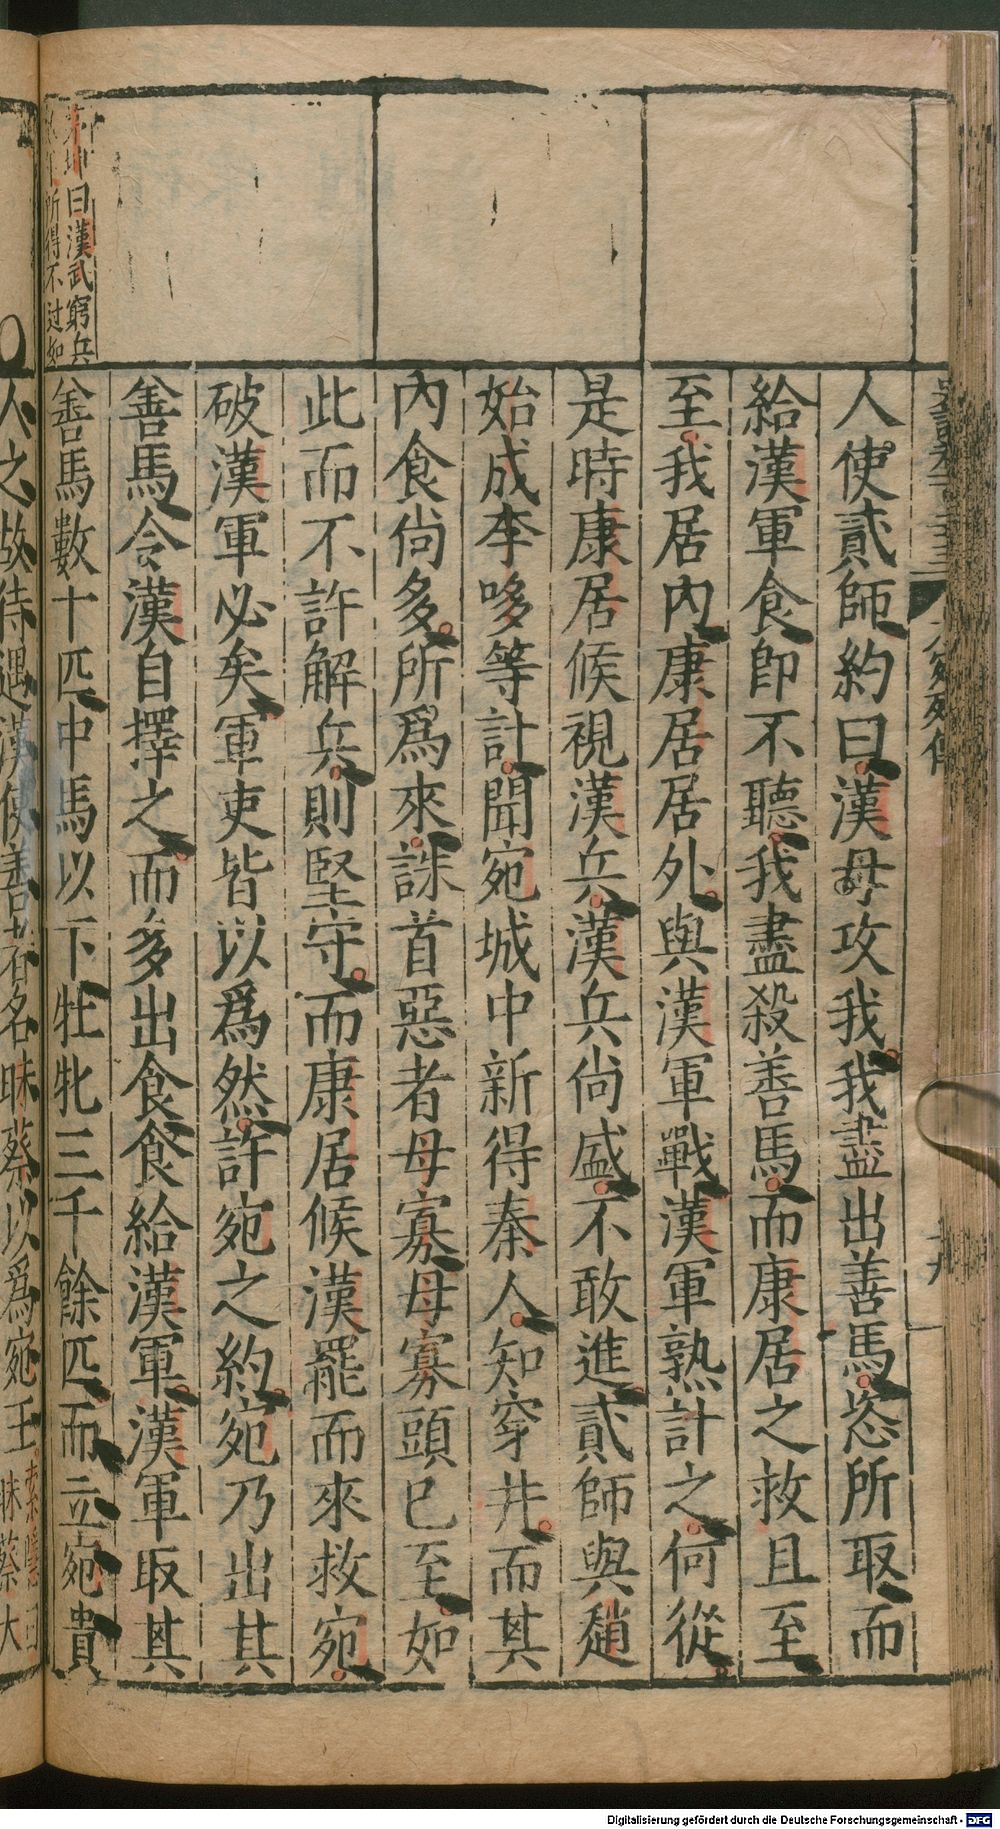 人使貳師約曰漢母攻我我盡出善馬恣所取而
給漢軍食即不聽我盡殺善馬而康居之救且至
至我居內康居居外與漢軍戰漢軍熟計之何從
是時康居候視漢兵漢兵尚盛不敢進貳師與趙
始成李哆等計聞宛城中新得秦人知穿井而其
內食尚多所爲來誅首惡者母寡母寡頭已至如
此而不許解兵則堅守而康居候漢罷而來救宛
破漢軍必矣軍吏皆以爲然許宛之約宛乃出其
善馬令漢自擇之而多出食食給漢軍漢軍取其
善馬數十匹中馬以下牡牝三千餘匹而立宛貴
坤曰漢武窮兵
所得不过如
人之故待遇漢使善者名昧蔡以爲宛王
昧蔡大
Digitalisierung gefördert durch die Deutsche Forschungsgemeinschaft - DFG